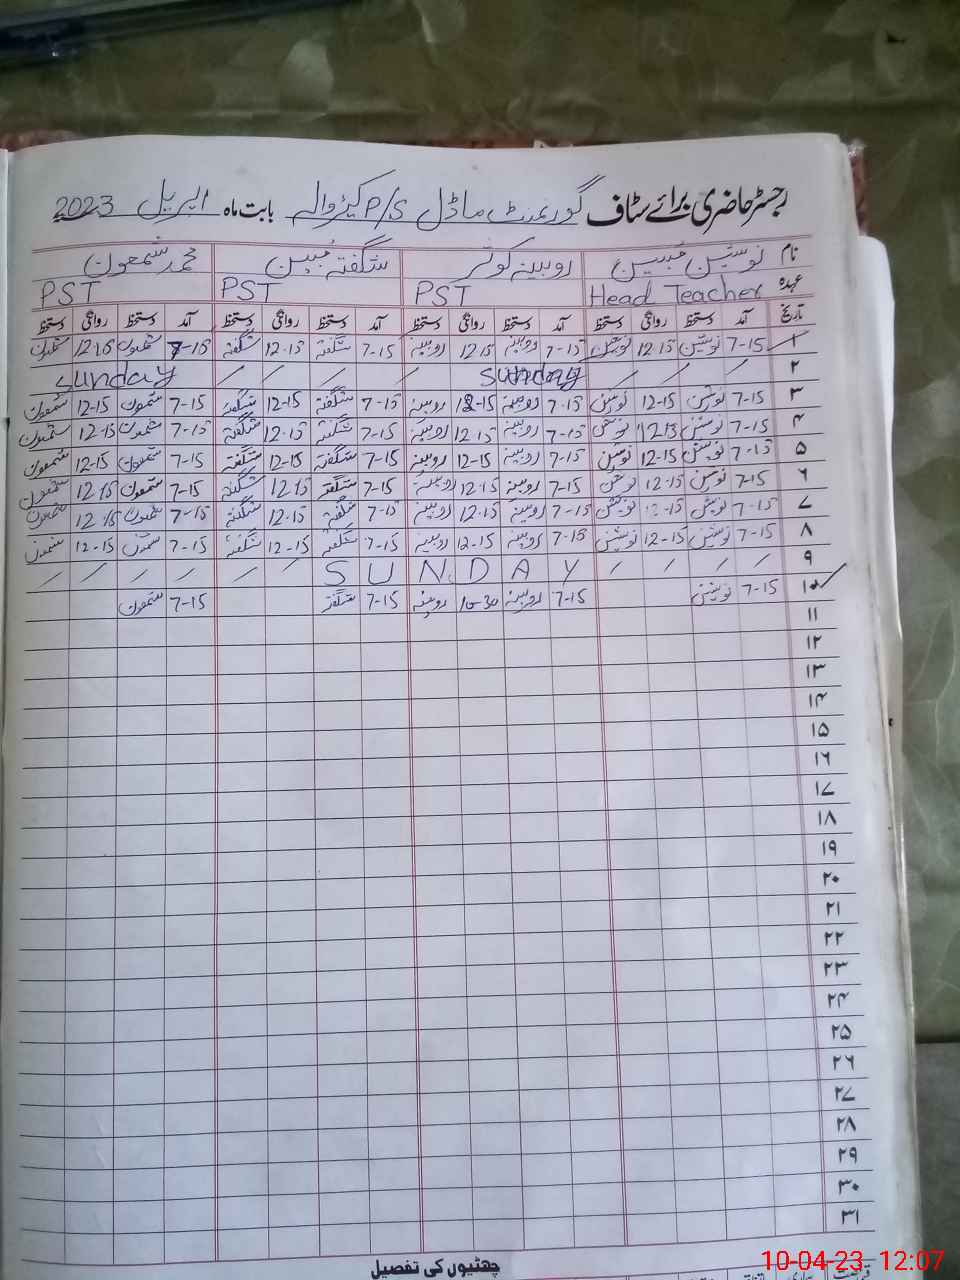 رجسٹر حاضری برائے سٹاف گورنمنٹ ماڈل P/S کیڑوالہ بابت ماہ اپریل 2023
نام نوشین مبین روبینہ کوثر شگفتہ مبین محمد شمعون
عہدہ Head Teacher PST PST PST
تاریخ آمد دستخط روانگی دستخط آمد دستخط روانگی دستخط آمد دستخط روانگی دستخط آمد دستخط روانگی دستخط
۱ 7-15 نوشین 12-15 نوشین 7-15 روبینہ 12-15 روبینہ 7-15 شگفتہ 12-15 شگفتہ 7-15 شمعون 12-15 شمعون
۲ Sunday Sunday
۳ 7-15 نوشین 12-15 نوشین 7-15 روبینہ 12-15 روبینہ 7-15 شگفتہ 12-15 شگفتہ 7-15 شمعون 12-15 شمعون
۴ 7-15 نوشین 12-15 نوشین 7-15 روبینہ 12-15 روبینہ 7-15 شگفتہ 12-15 شگفتہ 7-15 شمعون 12-15 شمعون
۵ 7-15 نوشین 12-15 نوشین 7-15 روبینہ 12-15 روبینہ 7-15 شگفتہ 12-15 شگفتہ 7-15 شمعون 12-15 شمعون
۶ 7-15 نوشین 12-15 نوشین 7-15 روبینہ 12-15 روبینہ 7-15 شگفتہ 12-15 شگفتہ 7-15 شمعون 12-15 شمعون
۷ 7-15 نوشین 12-15 نوشین 7-15 روبینہ 12-15 روبینہ 7-15 شگفتہ 12-15 شگفتہ 7-15 شمعون 12-15 شمعون
۸ 7-15 نوشین 12-15 نوشین 7-15 روبینہ 12-15 روبینہ 7-15 شگفتہ 12-15 شگفتہ 7-15 شمعون 12-15 شمعون
۹ SUNDAY
۱۰ 7-15 نوشین 7-15 روبینہ 10-30 روبینہ 7-15 شگفتہ 7-15 شمعون
۱۱
۱۲
۱۳
۱۴
۱۵
۱۶
۱۷
۱۸
۱۹
۲۰
۲۱
۲۲
۲۳
۲۴
۲۵
۲۶
۲۷
۲۸
۲۹
۳۰
۳۱
چھٹیوں کی تفصیل
10-04-23 12:07